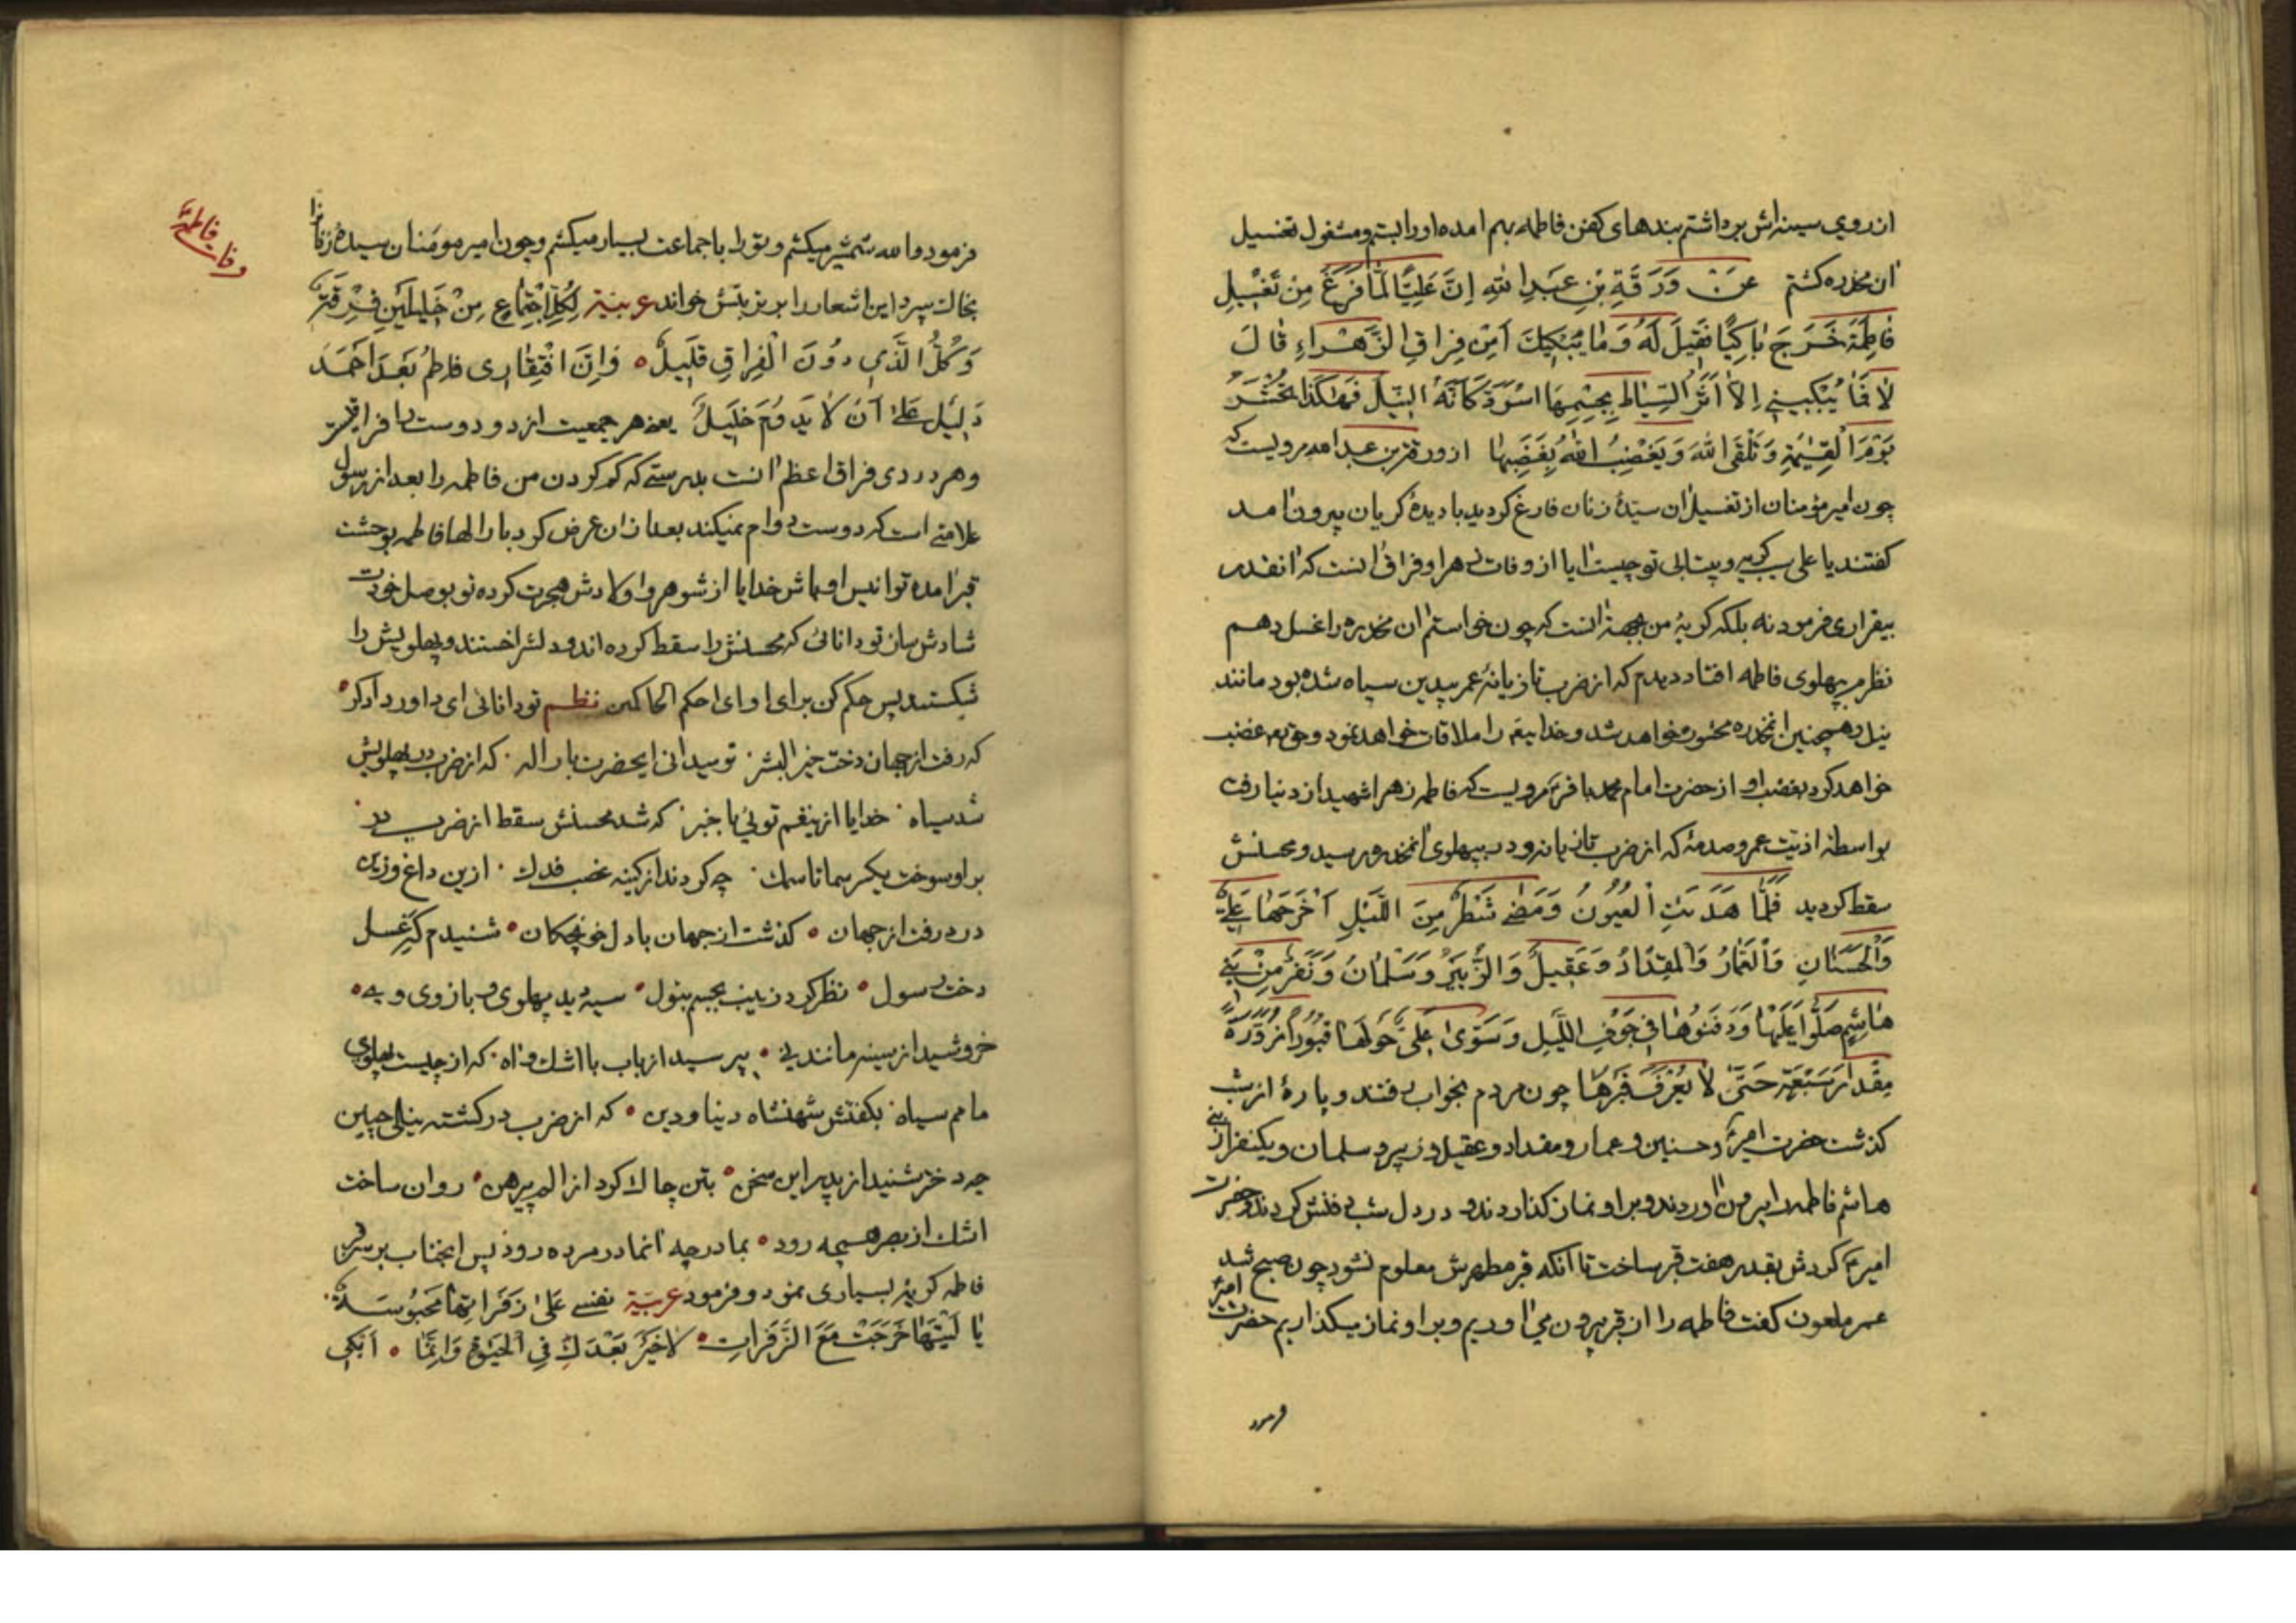 از روی سینه‌اش برداشتم بندهای کفن فاطمه بهم امده او را بستم و مشغول تغسیل
ان مخدره کشتم عَنْ وَرَقَةِ بْنِ عَبْدِ اللهِ اِنَّ عَلِيًّا لَمّا فَرَغَ مِنْ تَغْسِيلِ
فاطِمَةَ خَرَجَ باكِيًا فَقِيلَ لَهُ وَمٰا يُبْكِيكَ اَمِنْ فِراقِ الزَّهْراءِ قالَ
لا فَمٰا يُبْكِينِي اِلاّ اَثَرُ السِّياطِ بِجِسْمِها اسْوَدَّ كَاَنَّهُ النِّيلُ فَهٰكَذا تُحْشَرُ
يَوْمَ الْقِيٰمَةِ وَتَلْقَى اللهَ وَيَغْضِبُ اللهُ بِغَضَبِها از ورقة بن عبدالله مرویست که
چون امیر مؤمنان از تغسیل ان سیّدهٔ زنان فارغ کردید با دیدهٔ کریان بیرون امد
کفتند یا علی سبب کریه و بیتابی تو چیست ایا از وفات زهرا و فراق انست که انقدر
بیقراری فرمود نه بلکه کریهٔ من بجهة انست که چون خواستم ان مخدره را غسل دهم
نظرم بپهلوی فاطمه افتاد دیدم که از ضرب تازیانهٔ عمر بیدین سیاه شده بود مانند
نیل و همچنین انمخدره محشور خواهد شد و خدایتعالی را ملاقات خواهد نمود و حقتعالی غضب
خواهد کرد بغضب او از حضرت امام محمد باقر مرویست که فاطمه زهرا شهید از دنیا رفت
بواسطهٔ اذیت عمر و صدمهٔ که از ضرب تازیانه و در بپهلوی انمخدره رسید و محسنش
سقط کردید فَلَمّا هَدَئَتِ الْعُيُونُ وَمَضٰى شَطْرٌ مِنَ اللَّيْلِ اَخْرَجَها عَلِيٌّ
وَالْحَسَنانِ وَالْعَمّارُ وَالْمِقْدٰادُ وَعَقِيلٌ وَالزُّبَيْرُ وَسَلْمٰانُ وَنَفَرٌ مِنْ بَنِي
هاشِمٍ صَلَّوْا عَلَيْهٰا وَدَفَنُوهٰا فِي جَوْفِ اللَّيْلِ وَسَوّىٰ عَلِيٌّ حَوْلَها قُبُورًا مُزَوَّرَةً
مِقْدٰارَ سَبْعَةٍ حَتّىٰ لا يُعْرَفَ قَبْرُها چون مردم بخواب رفتند و پارهٔ از شب
کذشت حضرت امیر و حسنین و عمار و مقداد و عقیل و زبیر و سلمان و یکنفر از بنی
هاشم فاطمه را بیرون اوردند و بر او نماز کذاردند و در دل شب دفنش کردند و حضرت
امیر کردش بقدر هفت قبر ساخت تا انکه قبر مطهرش معلوم نشود چون صبح شد
عمر ملعون کفت فاطمه را از قبر بیرون می‌اوریم و بر او نماز میکذاریم حضرت امیر
فرمود
وفات فاطمه
فرمود والله شمشیر میکشم و تو را با جماعت بسیار میکشم و چون امیر مومنان سیدهٔ زنان را
بخاک سپرد این اشعار را بر تربتش خواند عربیّة لِكُلِّ اجْتِماعٍ مِنْ خَلِيلَيْنِ فُرْقَةٌ
وَكُلُّ الَّذِي دُونَ الْفِراقِ قَلِيلٌ وَاِنَّ افْتِقٰادِى فاطِمُ بَعْدَ اَحْمَدَ
دَلِيلٌ عَلىٰ اَنْ لا يَدُومَ خَلِيلُ یعنی هر جمعیت از دو دوست را فراقیست
و هر دردی فراق اعظم انست بدرستی که کم کردن من فاطمه را بعد از رسول
علامتی است که دوست دوام نمیکند بعد از ان عرض کرد بارالها فاطمه بوحشت
قبر امده تو انیس او باش خدایا از شوهر و اولادش هجرت کرده تو بوصل خودت
شادش سان تو دانائی که محسنش را سقط کرده‌اند و دلش را خستند و پهلویش را
شکستند پس حکم کن برای او ای احکم الحاکمین نظم تو دانائی ای داور دادکر
که رفت از جهان دخت خیر البشر تو میدانی ایحضرت بار اله که از ضرب در پهلویش
شد سیاه خدایا ازینغم توئی با خبر که شد محسنش سقط از ضرب در
بر او سوخت یکسر سما تا سمک چه کردند از کینه غصب فدک ازین داغ وزین
درد رفت از جهان کذشت از جهان با دل خونچکان شنیدم که غسل
دخت رسول نظر کرد زینب بجسم بتول سیه دید پهلوی و بازوی وی
خروشید از سینه مانند نی بپرسید از باب با اشک و اه که از چیست پهلوی
مامم سیاه بکفتش شهنشاه دنیا و دین که از ضرب در کشته نیلی چنین
چه دختر شنید از پدر این سخن بتن چاک کرد از الم پیرهن روان ساخت
اشک از بصر همچه رود بمادر چه انمادر مرده رود پس انجناب بر سر قبر
فاطمه کریهٔ بسیاری نمود و فرمود عربیّة نفسی عَلىٰ زَفَراتِها مَحْبُوسَةٌ
يا لَيْتَهٰا خَرَجَتْ مَعَ الزَّفَراتِ لا خَيْرَ بَعْدَكِ فِي الْحَيٰوةِ وَاِنَّمٰا اَبْكِي